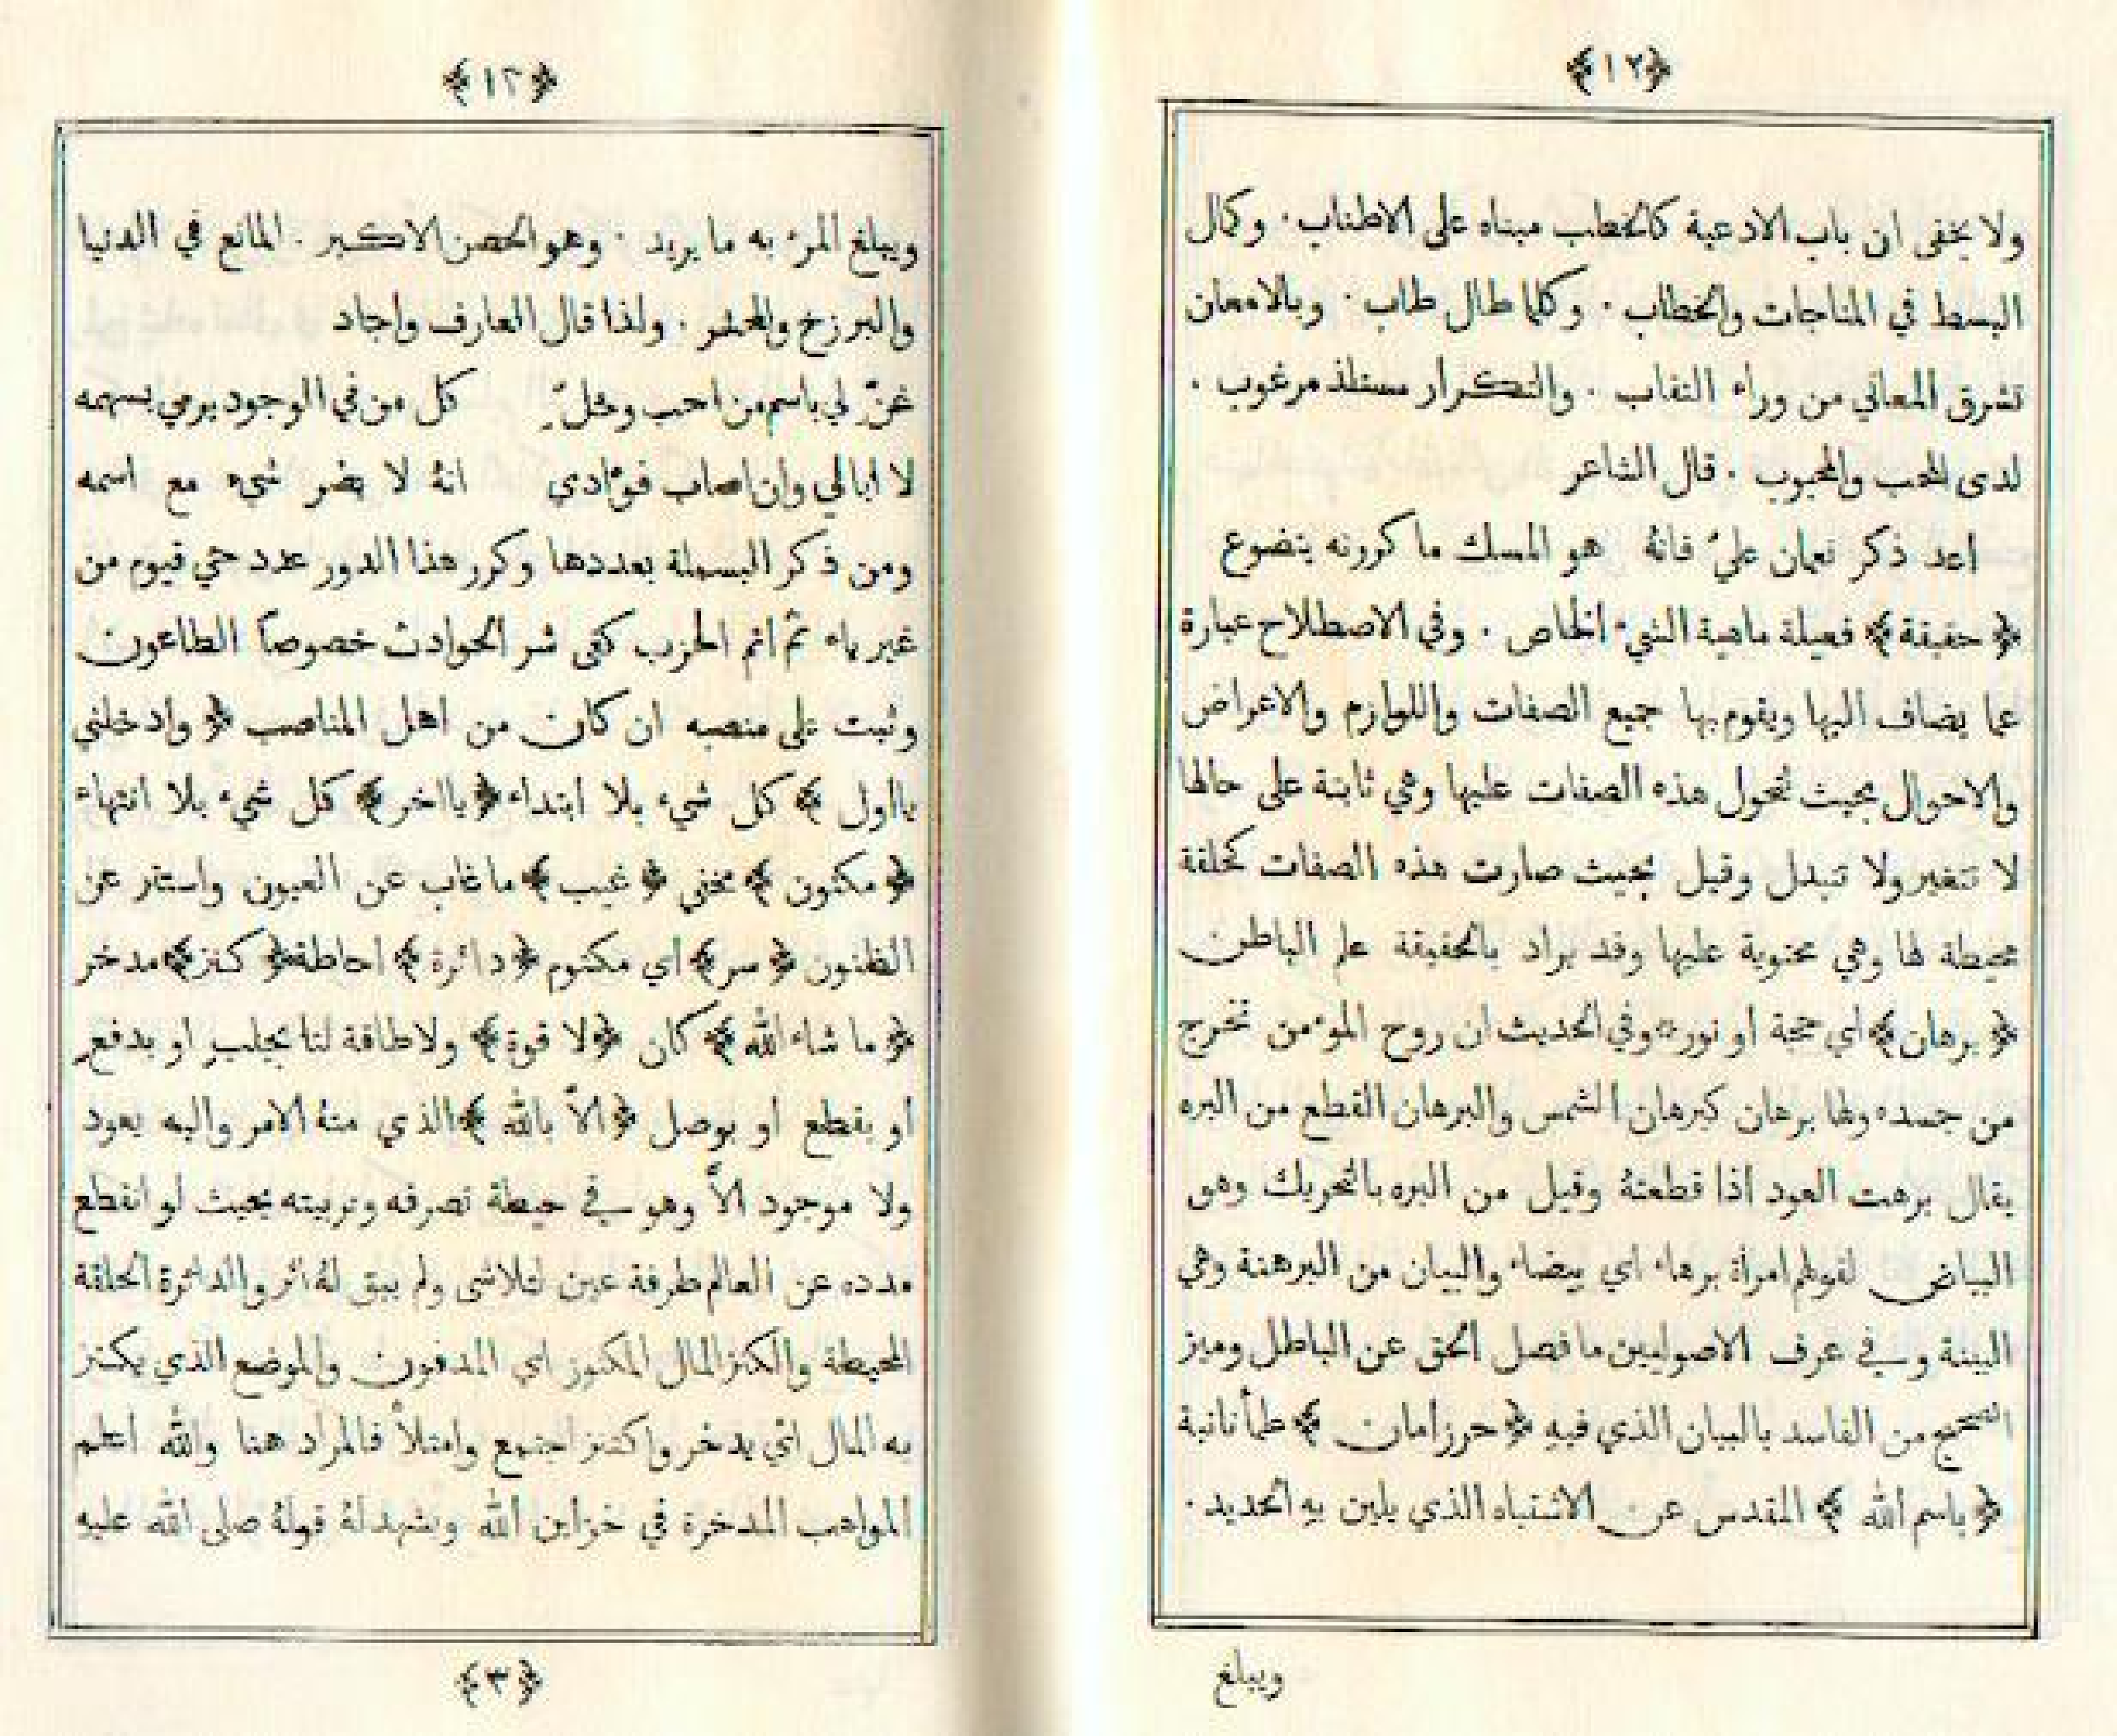 ﴿١٢﴾
ولا يخفى ان باب الادعية كالخطب مبناه على الاطناب · وكمال
البسط في المناجات والخطاب · وكلما طال طاب · وبالامعان
تشرق المعاني من وراء النقاب · والتكرار مستلذ مرغوب ·
لدى المحب والمحبوب · قال الشاعر
اعد ذكر نعمان عليّ فانهُ هو المسك ما كررته يتضوع
﴿ حقيقة ﴾ فعيلة ماهية الشيء الخاص · وفي الاصطلاح عبارة
عما يضاف اليها ويقوم بها جميع الصفات واللوازم والاعراض
والاحوال بحيث تتحول هذه الصفات عليها وهي ثابتة على حالها
لا تتغير ولا تتبدل وقيل بحيث صارت هذه الصفات كحلقة
محيطة لها وهي محتوية عليها وقد يراد بالحقيقة علم الباطن
﴿ برهان ﴾ اي حجة او نور وفي الحديث ان روح المؤمن تخرج
من جسده ولها برهان كبرهان الشمس والبرهان القطع من البره
يقال برهت العود اذا قطعتهُ وقيل من البره بالتحريك وهو
البياض لقولهم امرأة برهاء اي بيضاء والبيان من البرهنة وهي
البينة وفي عرف الاصوليين ما فصل الحق عن الباطل وميز
الصحيح من الفاسد بالبيان الذي فيهِ ﴿ حرز امان ﴾ طمأنانية
﴿ باسم الله ﴾ المقدس عن الاشتباه الذي يلين بهِ الحديد ·
ويبلغ
﴿١٣﴾
ويبلغ المرء به ما يريد · وهو الحصن الاكبر · المانع في الدنيا
والبرزخ والمحشر · ولذا قال العارف واجاد
غنِّ لي باسم من احب وخلِّ كل من في الوجود يرمي بسهمه
لا ابالي وان اصاب فؤادي انهُ لا يضر شيء مع اسمه
ومن ذكر البسملة بعددها وكرر هذا الدور عدد حي قيوم من
غير ياء ثم اتم الحزب كفى شر الحوادث خصوصاً الطاعون
وثبت على منصبه ان كان من اهل المناصب ﴿ وادخلني
يا اول ﴾ كل شيء بلا ابتداء ﴿ يا اخر ﴾ كل شيء بلا انتهاء
﴿ مكنون ﴾ مخفي ﴿ غيب ﴾ ما غاب عن العيون واستتر عن
الظنون ﴿ سر ﴾ اي مكتوم ﴿ دائرة ﴾ احاطة ﴿ كنز ﴾ مدخر
﴿ ما شاء الله ﴾ كان ﴿ لا قوة ﴾ ولا طاقة لنا بجلب او بدفع
او بقطع او بوصل ﴿ الاَّ بالله ﴾ الذي منهُ الامر واليه يعود
ولا موجود الاَّ وهو في حيطة تصرفه وتربيته بحيث لو انقطع
مدده عن العالم طرفة عين لتلاشى ولم يبق لهُ اثر والدائرة الحلقة
المحيطة والكنز المال المكنوز اي المدفون والموضع الذي يكنز
به المال اي يدخر واكتنز اجتمع وامتلأ فالمراد هنا والله اعلم
المواهب المدخرة في خزاين الله ويشهد لهُ قولهُ صلى الله عليهِ
﴿٣﴾